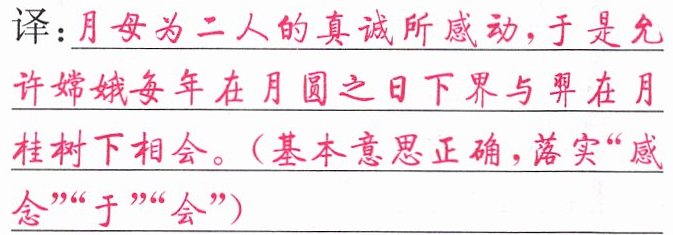 译:月母为二人的真诚所感动,于是允
许嫦娥每年在月圆之日下界与羿在月
桂树下相会。(基本意思正确,落实“感
念”“于”“会”)